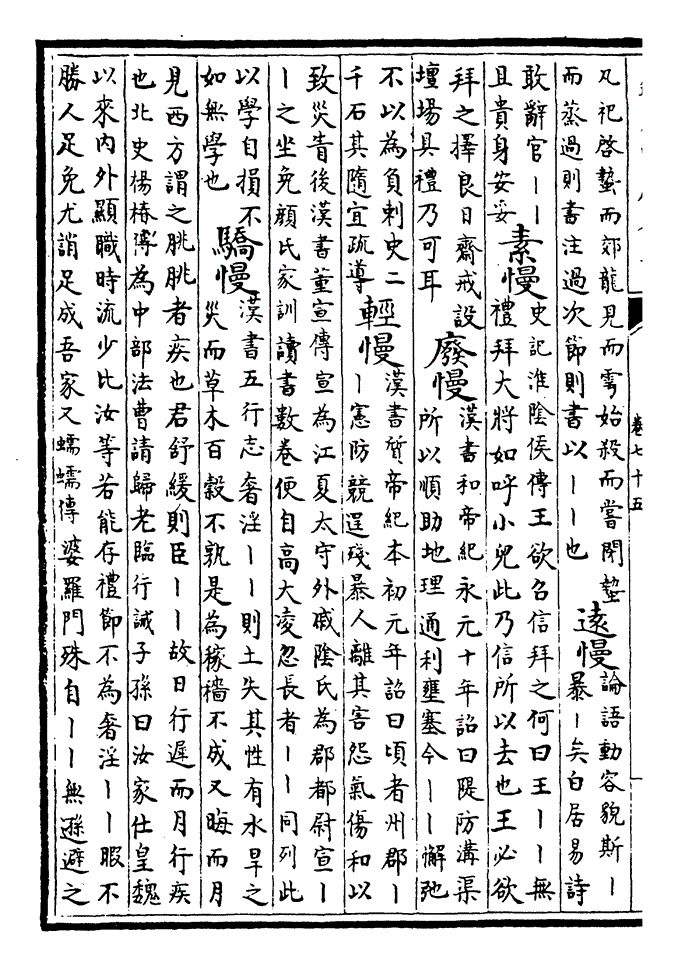 卷七十五
凡祀啓蟄而郊龍見而雩始殺而嘗閉蟄
而蒸過則書注過次節則書以丨丨也
遠慢
論語動容貌斯丨
暴丨矣白居易詩
敢辭官丨丨
且貴身安妥
素慢
史記淮陰侯傳王欲召信拜之何曰王丨丨無
禮拜大將如呼小兒此乃信所以去也王必欲
拜之擇良日齋戒設
壇場具禮乃可耳
廢慢
漢書和帝紀永元十年詔曰隄防溝渠
所以順助地理通利壅塞今丨丨懈弛
不以為負刺史二
千石其隨宜疏導
輕慢
漢書質帝紀本初元年詔曰頃者州郡丨
丨憲防競逞殘暴人離其害怨氣傷和以
致災眚後漢書董宣傳宣為江夏太守外戚陰氏為郡都尉宣丨
丨之坐免顏氏家訓讀書數卷便自高大凌忽長者丨丨同列此
以學自損不
如無學也
驕慢
漢書五行志奢淫丨丨則土失其性有水旱之
災而草木百穀不孰是為稼穡不成又晦而月
見西方謂之朓朓者疾也君舒緩則臣丨丨故日行遲而月行疾
也北史楊椿傳為中部法曹請歸老臨行誡子孫曰汝家仕皇魏
以來內外顯職時流少比汝等若能存禮節不為奢淫丨丨假不
勝人足免尤誚足成吾家又蠕蠕傳婆羅門殊自丨丨無遜避之